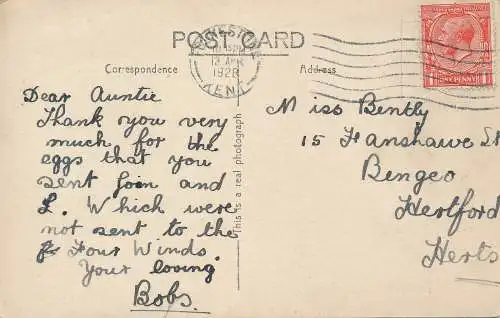 POST CARD
FOLKESTONE
12 APR
1928
KENT
Correspondence
Address
ONE PENNY
Dear Auntie
Thank you very
much for the
eggs that you
sent Join and
I. Which were
not sent to the
Four Winds.
Your loving
Bobs.
This is a real photograph
Miss Bently
15 Fanshawe St
Bengeo
Hertford
Herts